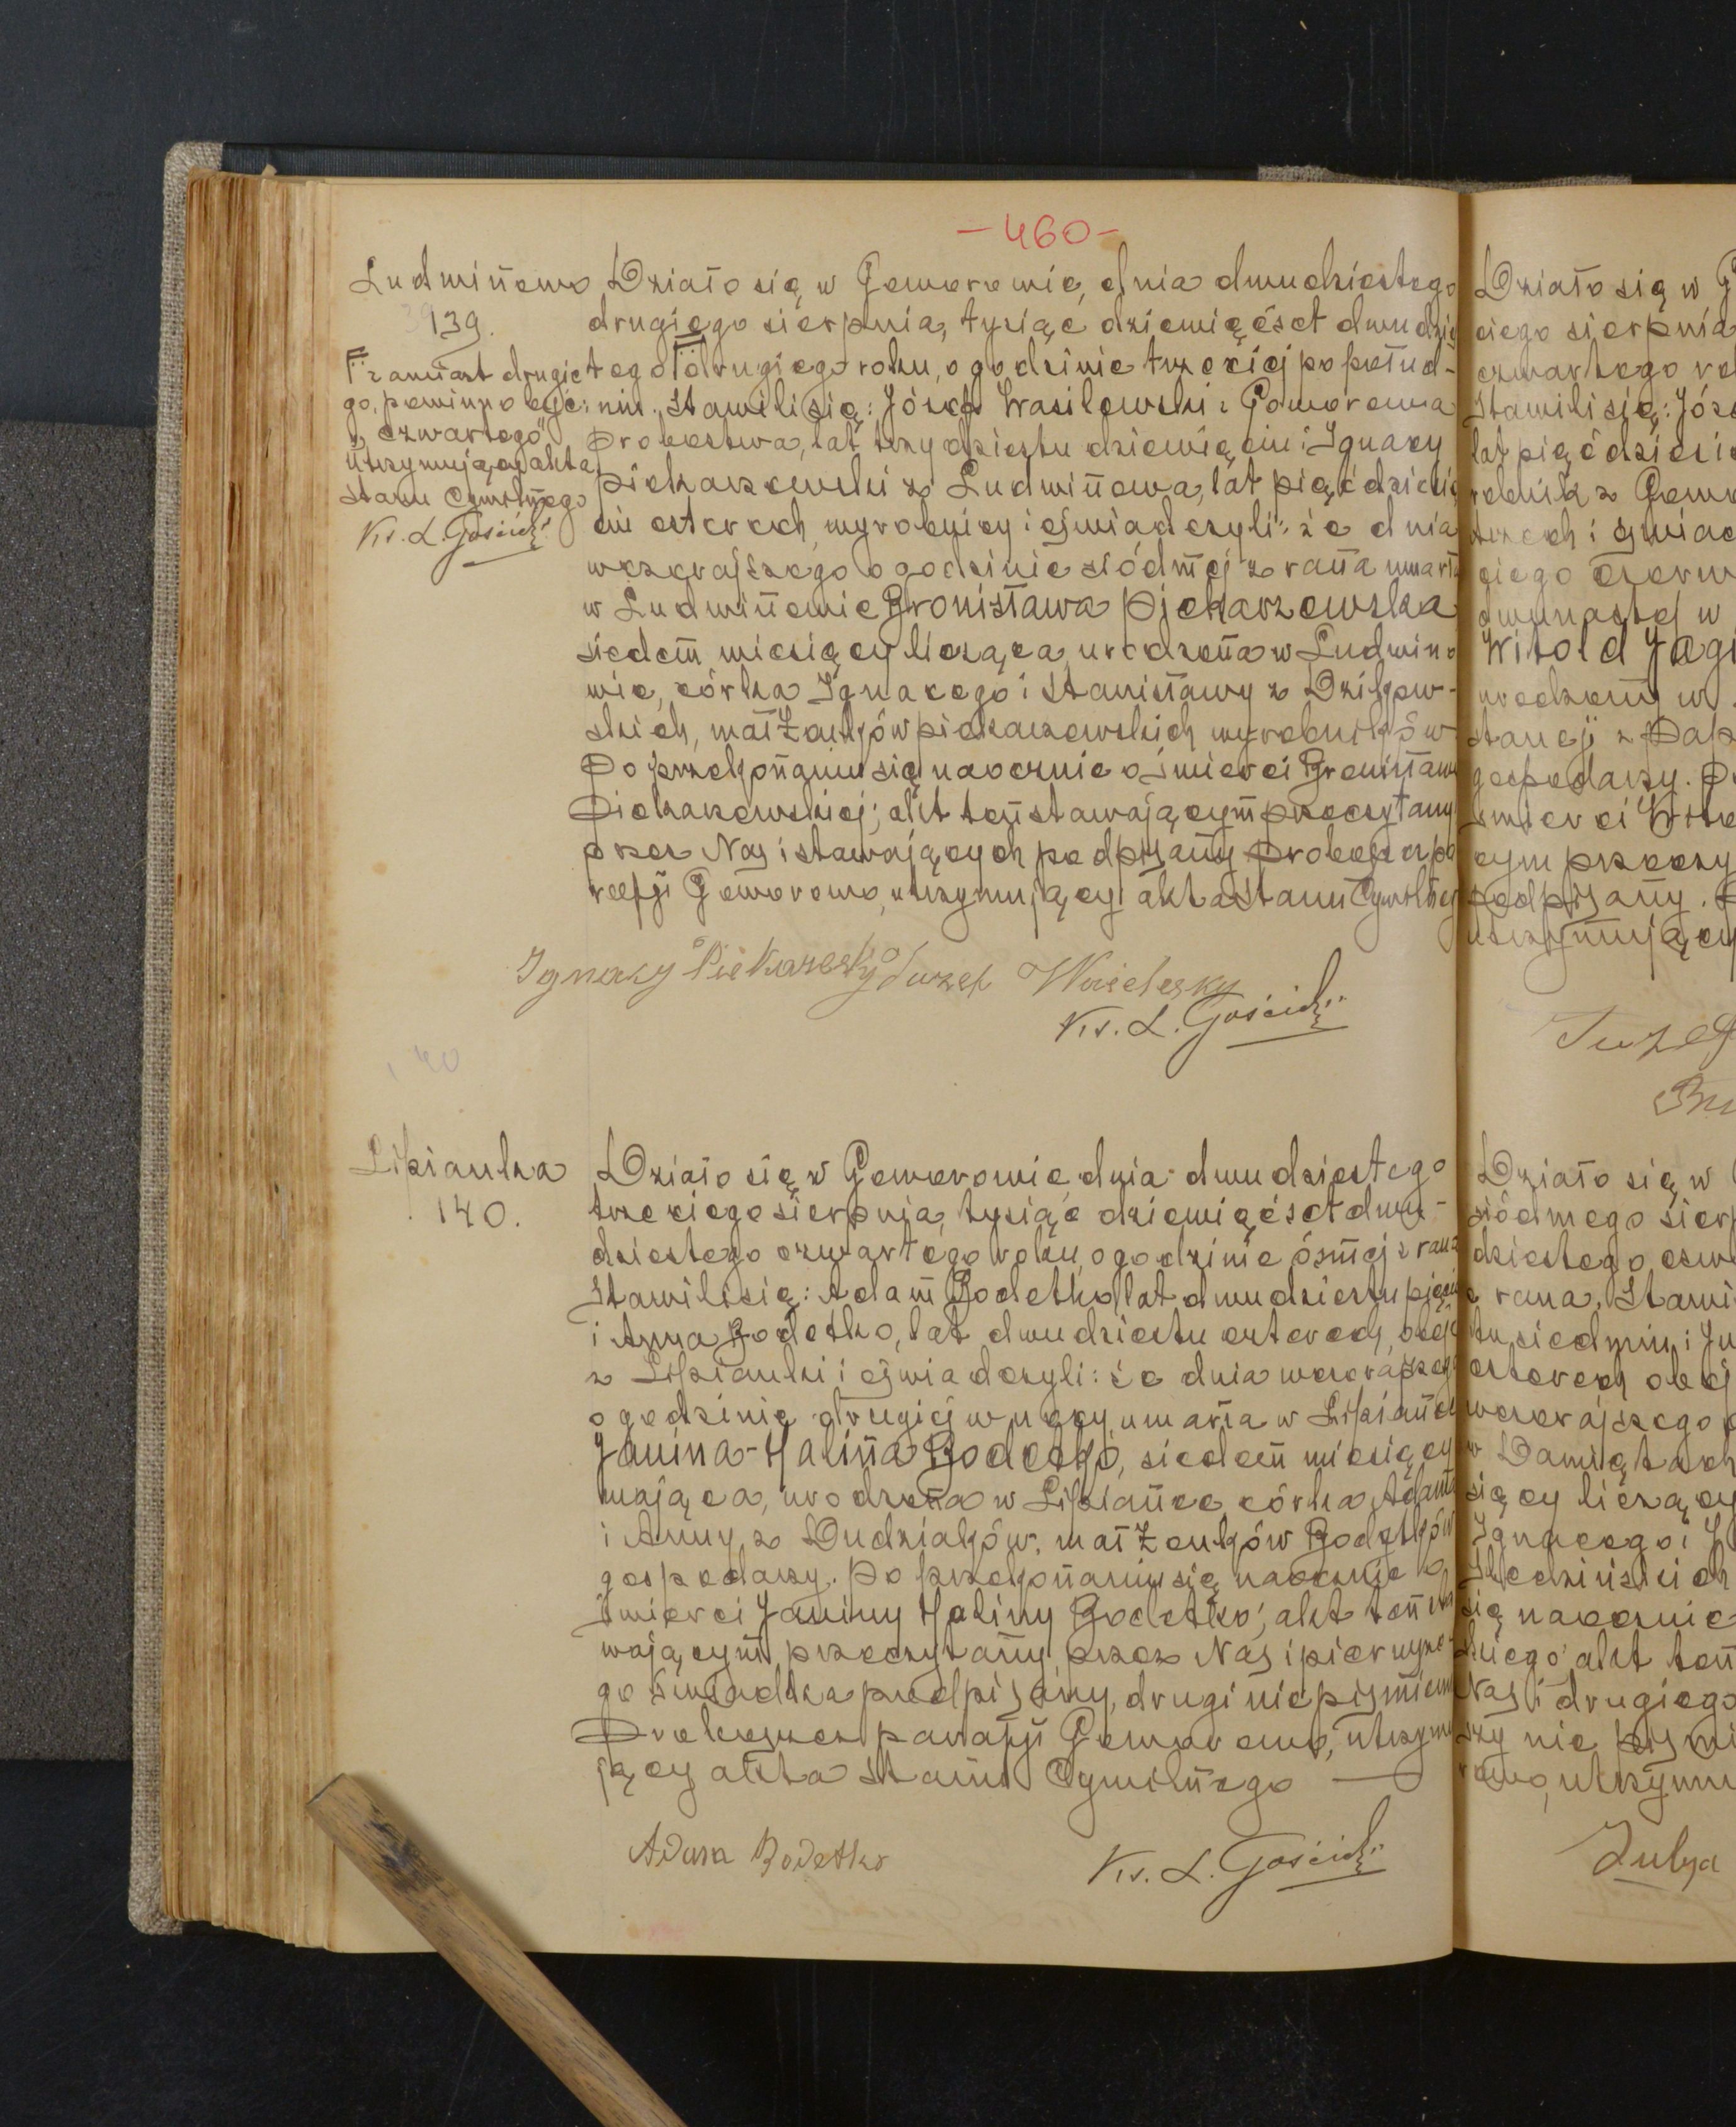 -460-
Ludwinowo
139.
1) zamiast drugie-
go, powinno być:
"czwartego"
Utrzymujący akta
Stanu Cywilnego
Ks. L. Gościcki
Działo się w Goworowie, dnia dwudziestego
drugiego sierpnia, tysiąc dziewięćset dwudzies
tego 1) drugiego roku, o godzinie trzeciej po połud-
niu. Stawili się: Józef Wasilewski z Goworowa
Probostwa, lat trzydziestu dziewięciu i Ignacy
Piekarzewski z Ludwinowa, lat pięćdziesię
ciu czterech, wyrobnicy i oświadczyli: że dnia
wczorajszego o godzinie siódmej z rana umarła
w Ludwinowie Bronisława Piekarzewska
siedem miesięcy licząca, urodzona w Ludwino
wie, córka Ignacego i Stanisławy z
małżonków Piekarzewskich wyrobników
Po przekonaniu się naocznie o śmierci Bronisławy
Piekarzewskiej; akt ten stawającym przeczytany
przez Nas i stawających podpisany Proboszcz pa
rafji Goworowo, utrzymujący akta Stanu Cywilnego
Ignacy Piekarzesky Juzef Wasielesky
Ks. L. Gościcki
140
Lipianka
140.
Działo się w Goworowie dnia dwudziestego
trzeciego sierpnia, tysiąc dziewięćset dwu-
dziestego czwartego roku, o godzinie ósmej z rana
Stawili się: Adam Bodetko, lat dwudziestu pięciu
i Anna Bodetko, lat dwudziestu czterech, oboje
z Lipianki i oświadczyli: że dnia wczorajszego
o godzinie drugiej w nocy, umarła w Lipiance
Janina-Halina Bodetko, siedem miesięcy
mająca, urodzona w Lipiance córka Adama
i Anny z Dudziaków, małżonków Bodetków
gospodarzy. Po przekonaniu się naocznie o
śmierci Janiny Haliny Bodetko; akt ten sta
wającym przeczytany, przez Nas i pierwsze-
go świadka podpisany, drugi niepiśmienny
Proboszcz parafji Goworowo, utrzymu
jący akta Stanu Cywilnego
Adam Bodetko Ks. L. Gościcki
Działo się w G
ciego sierpnia
czwartego ro
Stawili się: Józ
lat pięćdziesię
robnik z Gowo
trzech i świad
ciego czerw
dwunastej w
Witold Jagi
urodzony w
stancji z Pap
gospodarzy. P
śmierci Wito
cym przeczy
podpisany. P
utrzymujący
Juzef
Działo się w
siódmego sierp
dziestego czwa
z rana, Stawi
stu siedmiu i Ju
czterech oboj
wczorajszego
w Damiętach
sięcy liczący
Ignacego i
się naocznie
skiego akt ten
Nas i drugiego
szy nie piśmi
rowo, utrzymu
Julja